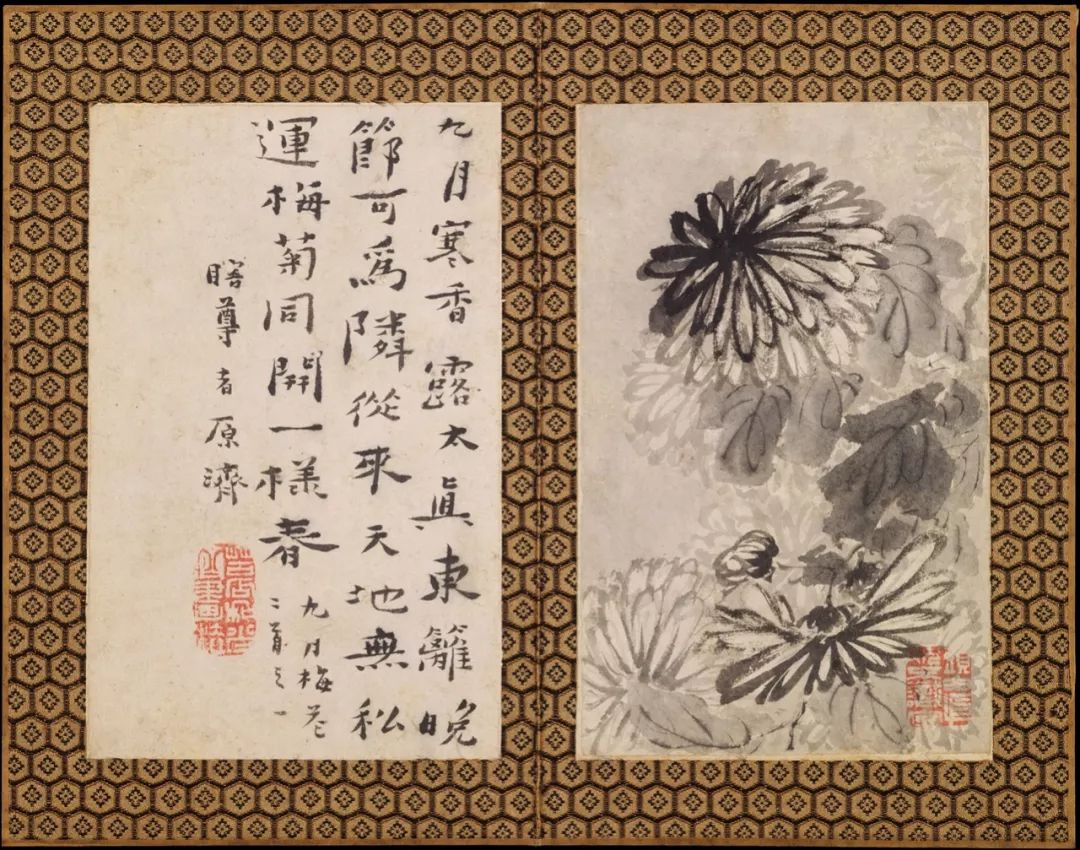 九月寒香露太真東籬晚
節可為隣從來天地無私
運梅菊同開一樣春
九月梅花
二首之一
瞎尊者原濟